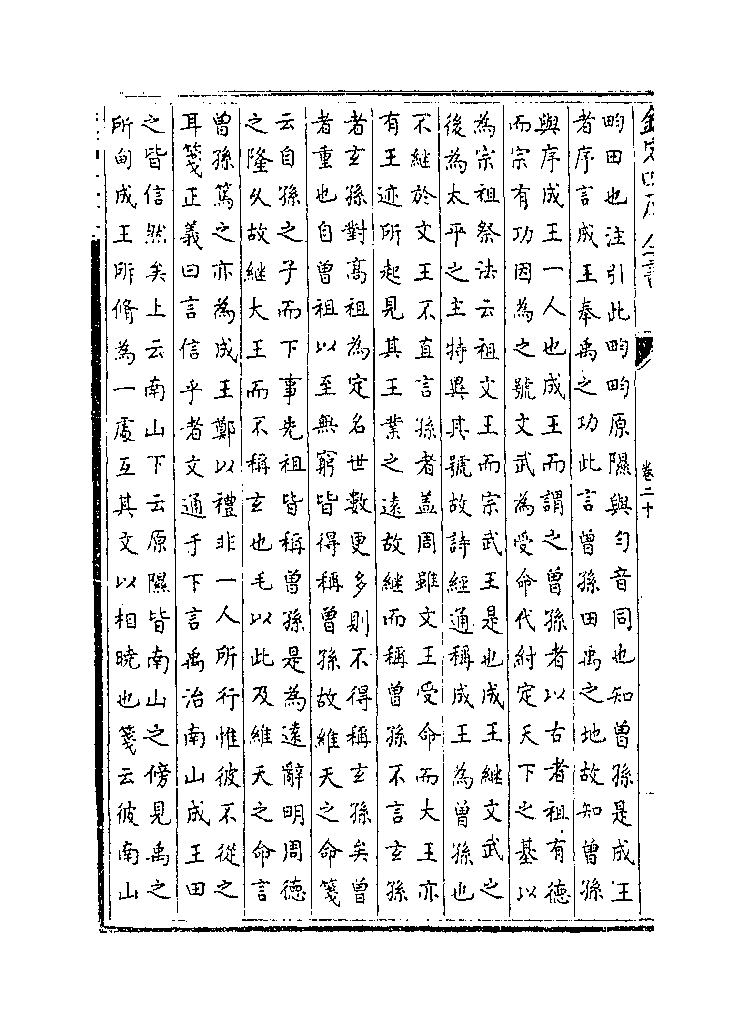 欽定四庫全書
卷二十
畇田也注引此畇畇原隰與匀音同也知曾孫是成王
者序言成王奉禹之功此言曾孫田禹之地故知曾孫
與序成王一人也成王而謂之曾孫者以古者祖有德
而宗有功因為之號文武為受命代紂定天下之基以
為宗祖祭法云祖文王而宗武王是也成王繼文武之
後為太平之主特異其號故詩經通稱成王為曾孫也
不繼於文王不直言孫者盖周雖文王受命而大王亦
有王迹所起見其王業之遠故繼而稱曾孫不言玄孫
者玄孫對髙祖為定名世數更多則不得稱玄孫矣曾
者重也自曾祖以至無窮皆得稱曾孫故維天之命箋
云自孫之子而下事先祖皆稱曾孫是為遠辭明周德
之隆久故繼大王而不稱玄也毛以此及維天之命言
曾孫篤之亦為成王鄭以禮非一人所行惟彼不從之
耳箋正義曰言信乎者文通于下言禹治南山成王田
之皆信然矣上云南山下云原隰皆南山之傍見禹之
所甸成王所脩為一處互其文以相曉也箋云彼南山